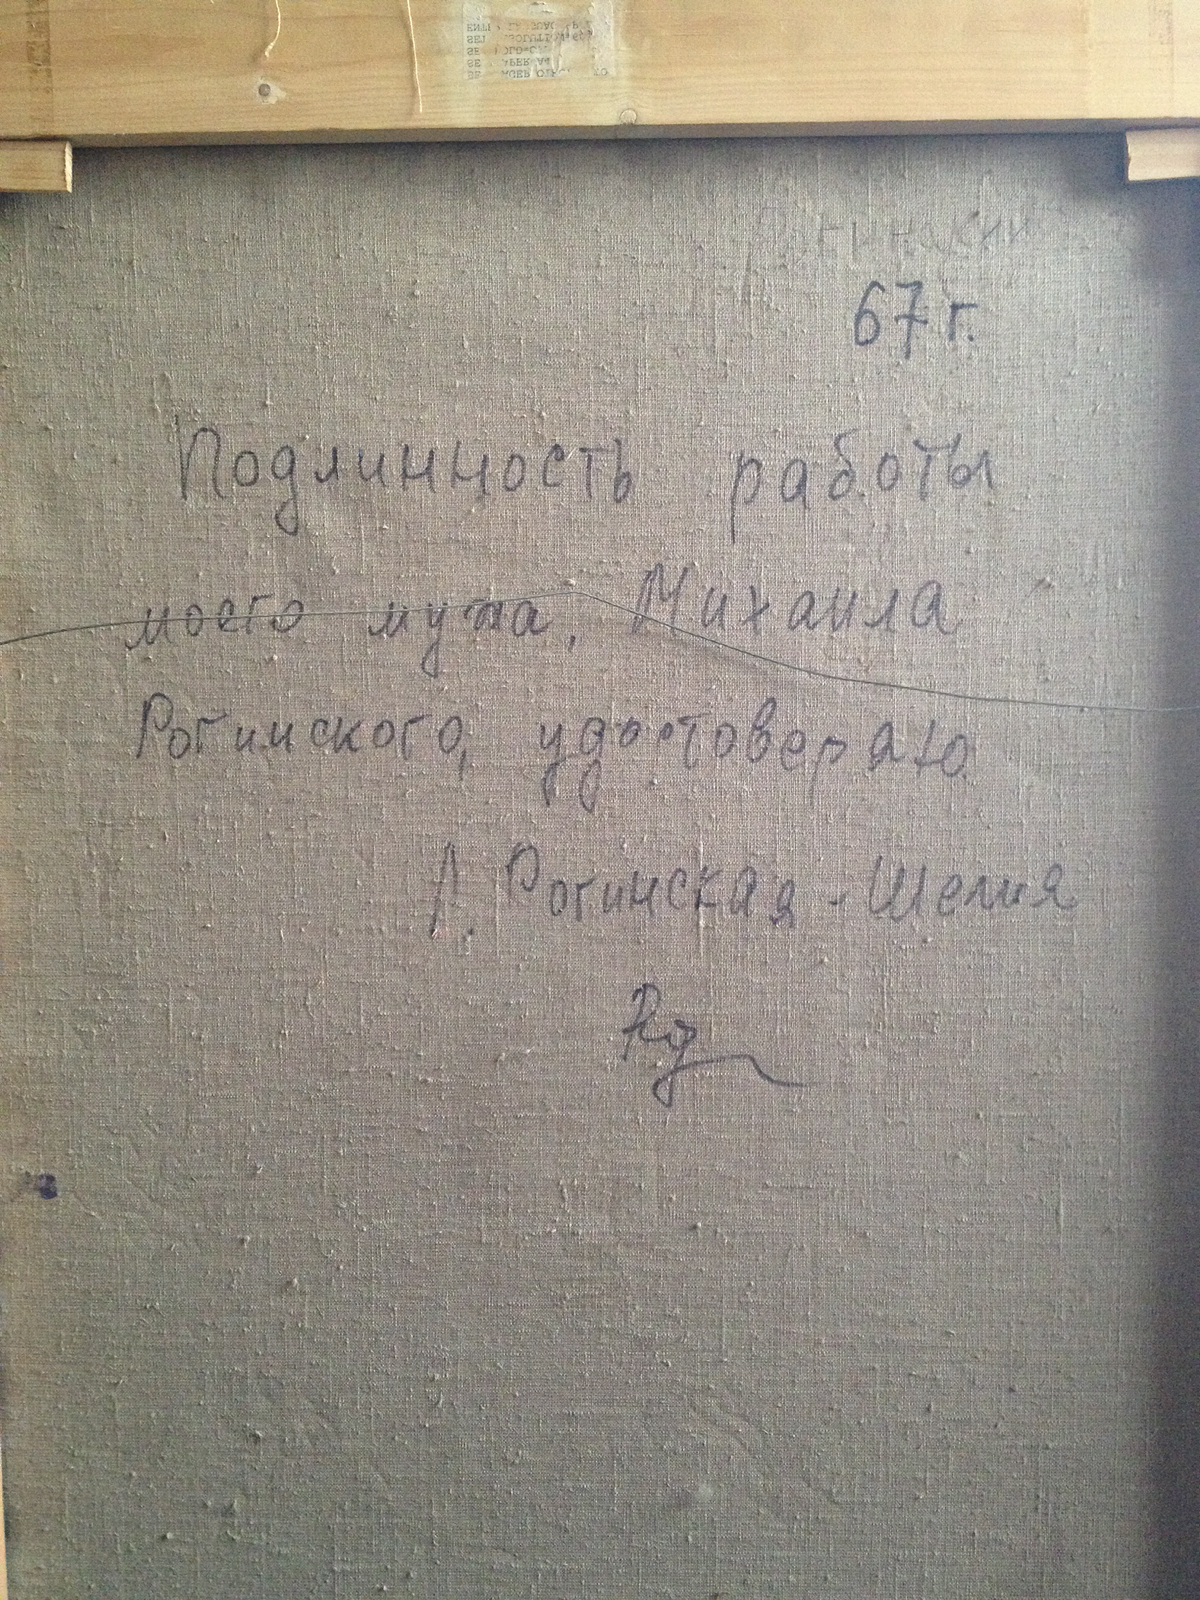 Рогинский
67 г.
Подлинность работы
моего мужа, Михаила
Рогинского, удостоверяю
Л. Рогинская-Шелия